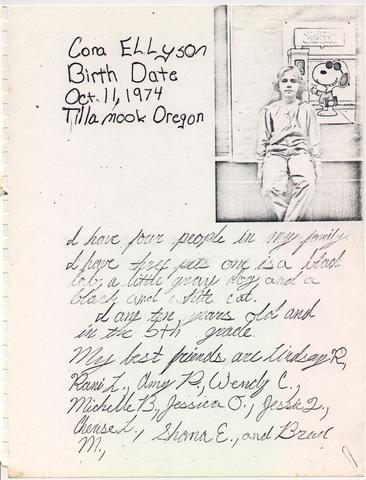 Cora Ellyson
Birth Date
Oct. 11, 1974
Tillamook Oregon
I have four people in my family
I have three pets one is a black
lab, a little gray dog and a
black and white cat.
I am ten years old and
in the 5th grade.
My best friends are Lindsay R,
Rani L., Amy P., Wendy C.,
Michelle B, Jessica O., Jessie L.,
L., Shana E., and Brad
M.,